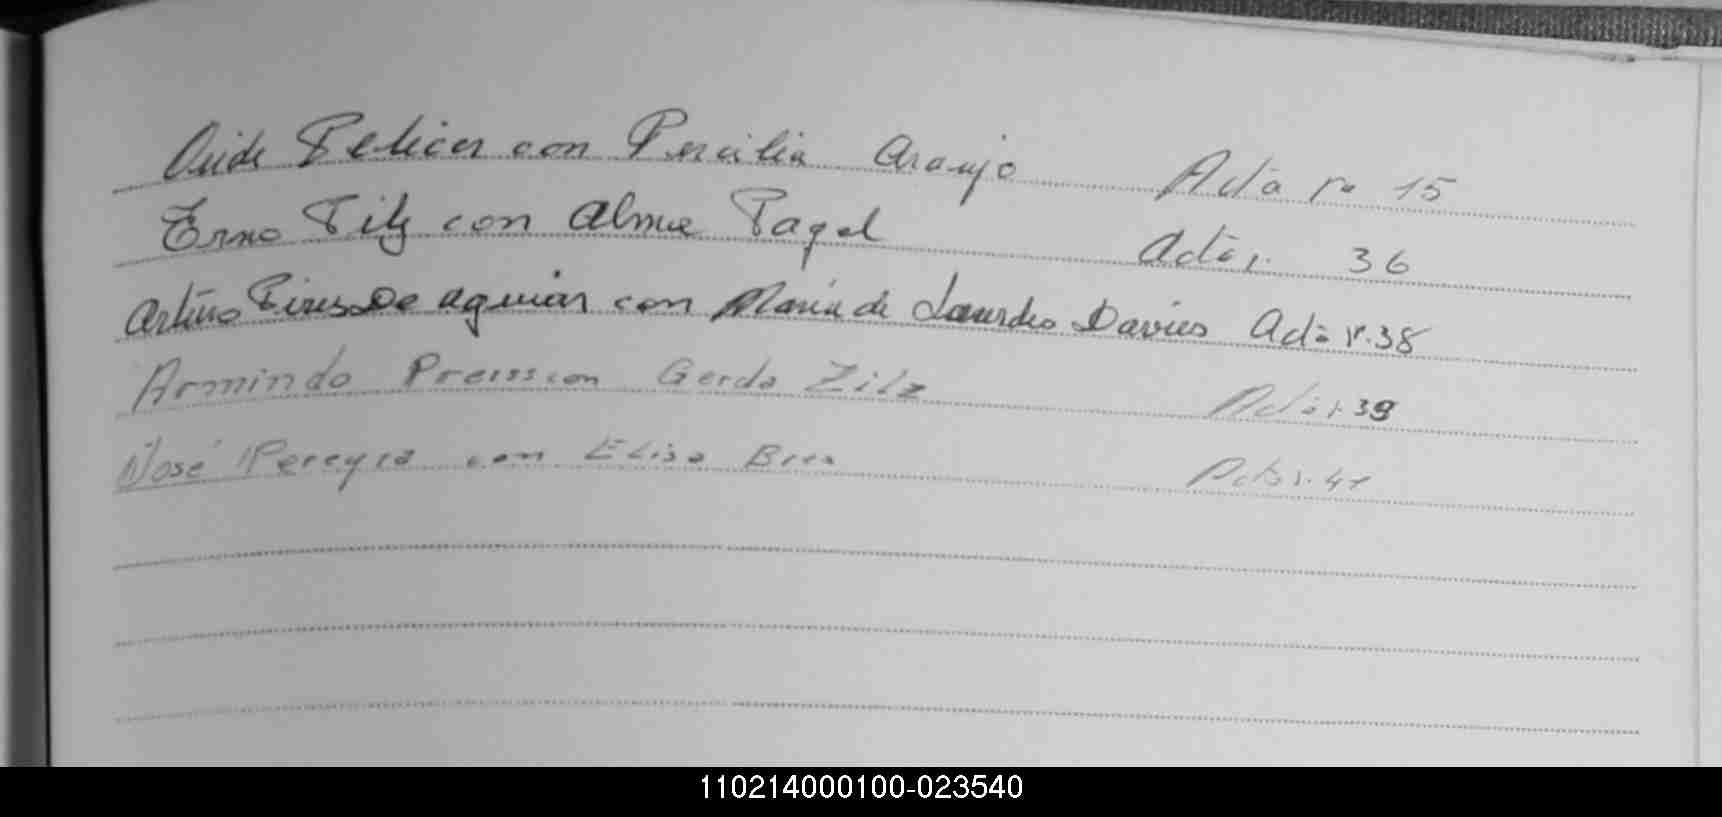 con Araujo Acta no 15
Erno con Alma Pagel Acta r. 36
Arturo Pires De aguiar con Maria de Lourdes Davies Acta r. 38
Armindo Preiss con Gerda Zilz Acta r. 39
José Pereyra con Elisa Acta r. 41
110214000100-023540